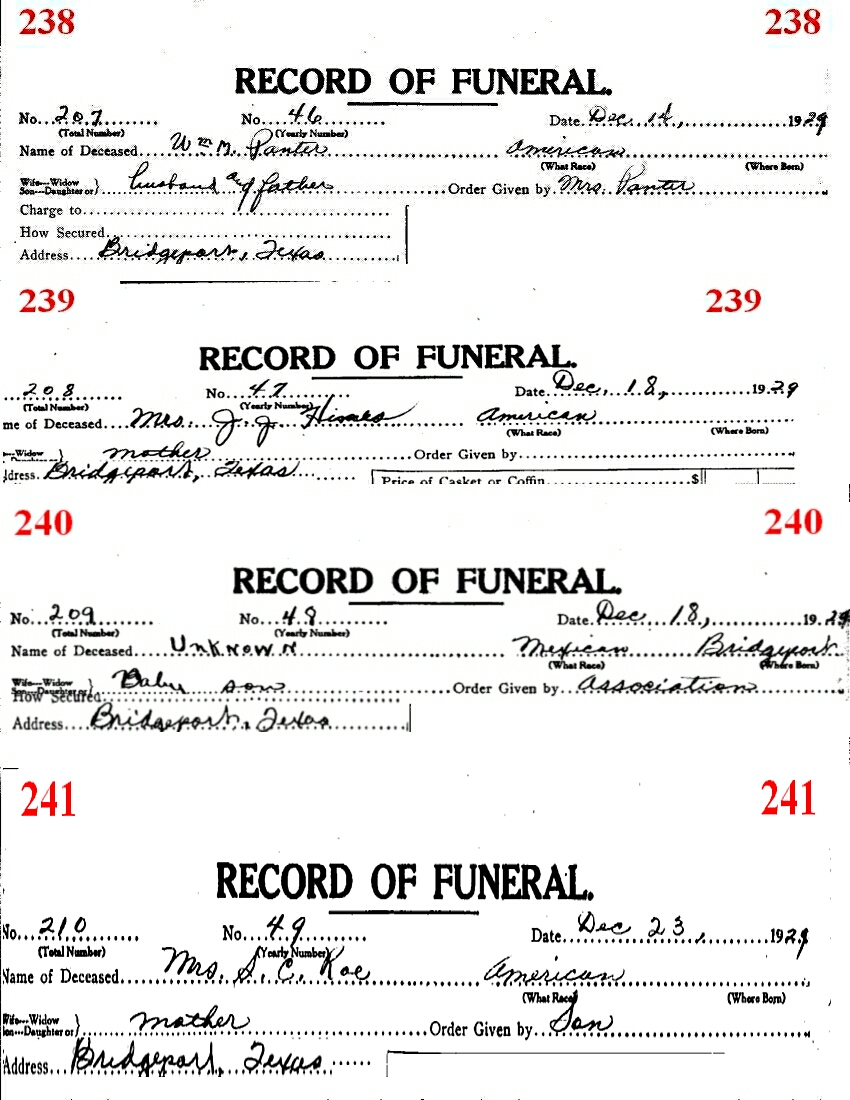 238 238
RECORD OF FUNERAL.
No. 207 No. 46 Date Dec. 14, 1929
(Total Number) (Yearly Number)
Name of Deceased Wm M. Panter American
(What Race) (Where Born)
Wife---Widow Son---Daughter or } husband and father Order Given by Mrs. Panter
Charge to
How Secured
Address Bridgeport, Texas
239 239
RECORD OF FUNERAL.
208 No. 47 Date Dec, 18, 1929
(Total Number) (Yearly Number)
me of Deceased Mrs. J. J. Himes American
(What Race) (Where Born)
Widow } mother Order Given by
ddress. Bridgeport, Texas
Price of Casket or Coffin $
240 240
RECORD OF FUNERAL.
No. 209 No. 48 Date Dec 18, 1929
(Total Number) (Yearly Number)
Name of Deceased Unknown Mexican Bridgeport
(What Race) (Where Born)
Wife---Widow Son---Daughter or } Baby son Order Given by Association
How Secured
Address Bridgeport, Texas
241 241
RECORD OF FUNERAL.
No. 210 No. 49 Date Dec 23, 1929
(Total Number) (Yearly Number)
Name of Deceased Mrs. S. C. Roe American
(What Race) (Where Born)
Wife---Widow Son---Daughter or } mother Order Given by Son
Address Bridgeport, Texas